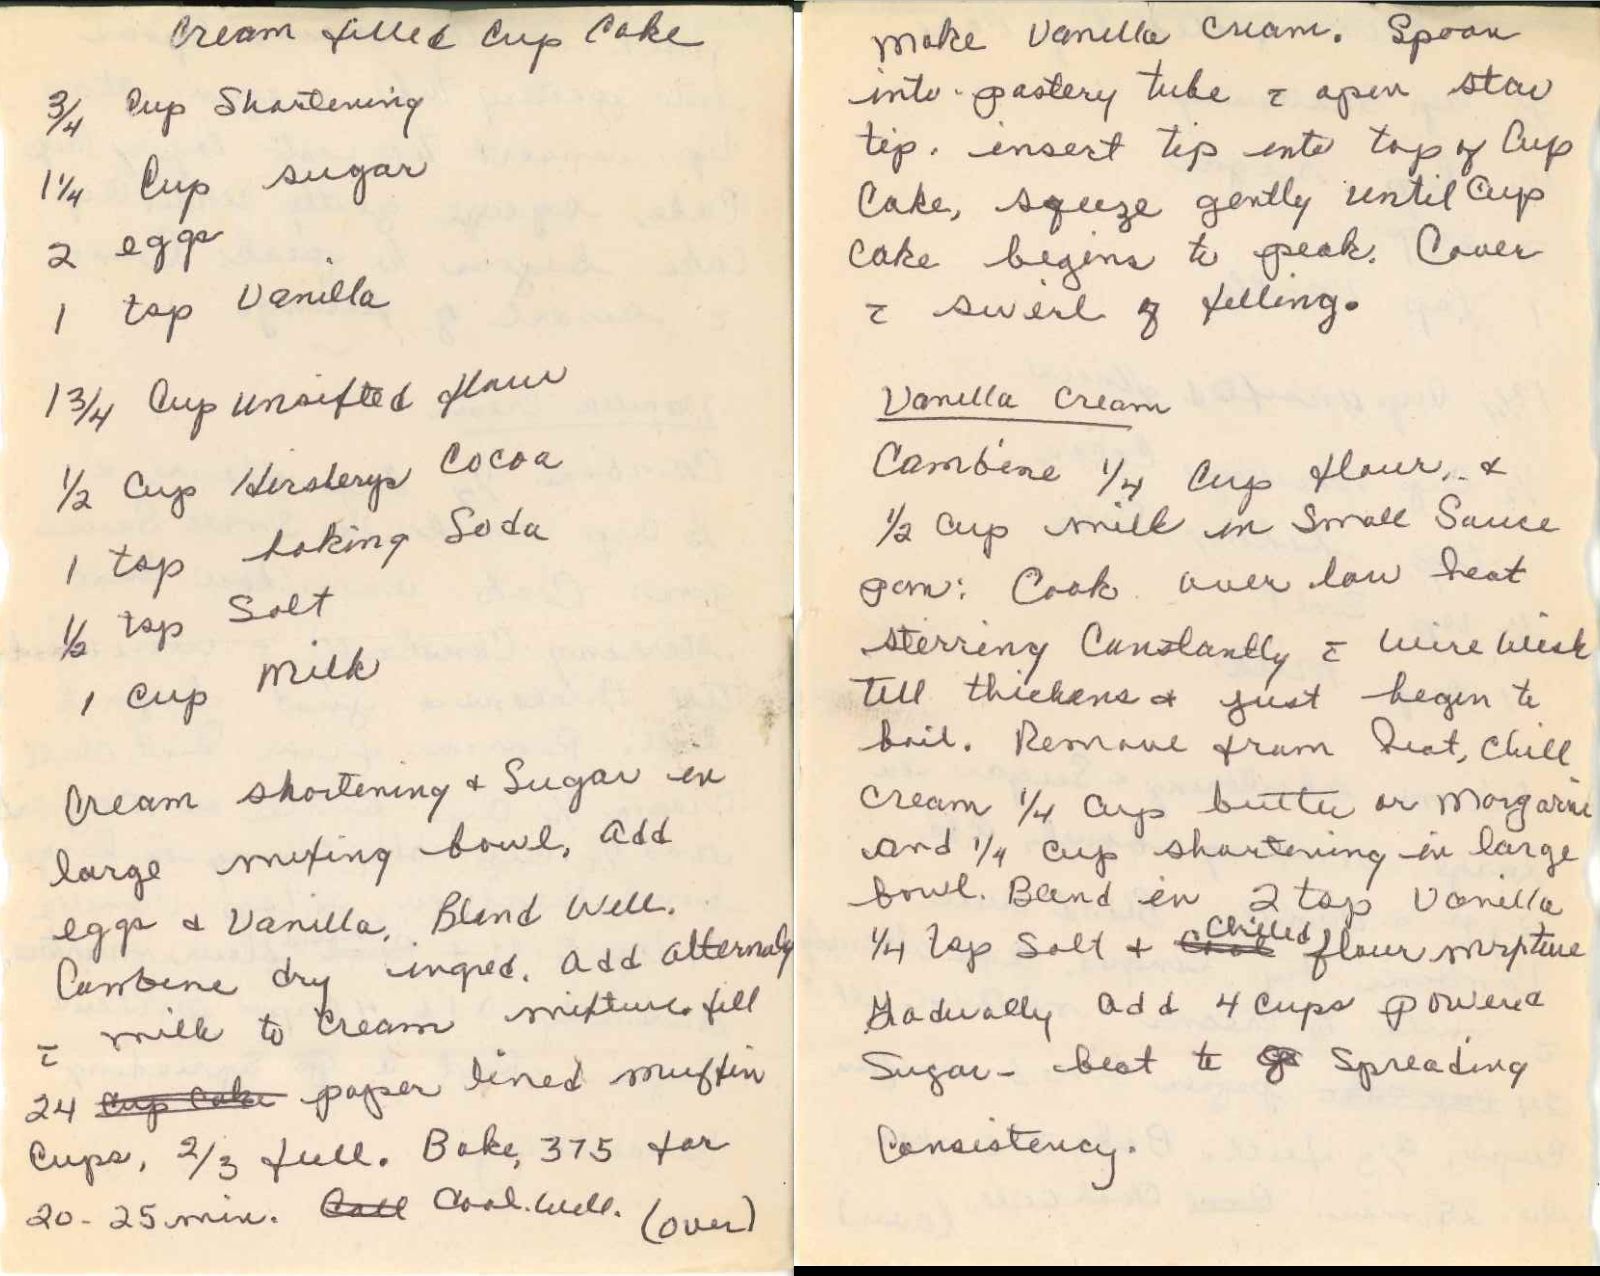 Cream filled Cup Cake
3/4 Cup Shortening
1 1/4 Cup sugar
2 eggs
1 tsp Vanilla
1 3/4 Cup unsifted flour
1/2 Cup Hersherys Cocoa
1 tsp baking Soda
1/2 tsp Salt
1 cup Milk
Cream shortening & Sugar in
large mixing bowl, add
eggs & Vanilla, Blend Well.
Combine dry ingred. add alternaly
c̄ milk to cream mixture. fill
24 ~~Cup Cake~~ paper lined muffin
Cups, 2/3 full. Bake, 375 for
20-25 min. Cool. Well. (over)
Make Vanilla Cream. Spoon
into pastery tube c̄ open star
tip. insert tip into top of Cup
Cake, sqeeze gently until Cup
Cake begins to peak. Cover
c̄ swirl of filling.
Vanilla Cream
Combine 1/4 Cup flour, &
1/2 Cup milk in Small Sauce
pan: Cook over low heat
sterring Constantly c̄ wire wisk
till thickens & just begin to
boil. Remove from heat, chill
Cream 1/4 Cup butter or Margarine
and 1/4 cup shortening in large
bowl. Blend in 2 tsp Vanilla
1/4 tsp Salt & ~~Cool~~ Chilled flour mixture
Gradually add 4 Cups powered
Sugar - beat to Spreading
Consistency.